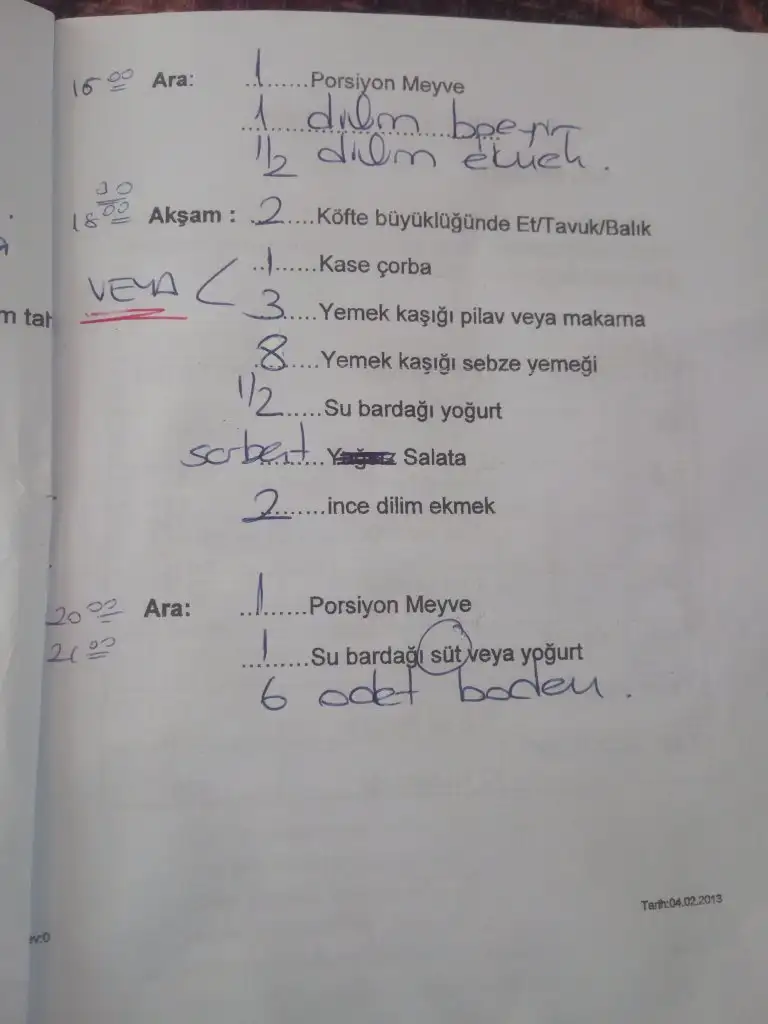 16 00 Ara: ..1......Porsiyon Meyve
1 dilim bpeynir
1/2 dilim ekmek.
30
18 00 Akşam : .2....Köfte büyüklüğünde Et/Tavuk/Balık
..1......Kase çorba
VEYA <
m tah
3.....Yemek kaşığı pilav veya makarna
8.....Yemek kaşığı sebze yemeği
1/2.....Su bardağı yoğurt
serbest... Yağsız Salata
2.......ince dilim ekmek
20 00 Ara: ..1......Porsiyon Meyve
21 00 ..1......Su bardağı süt veya yoğurt
6 adet badem.
Tarih:04.02.2013
ev:0